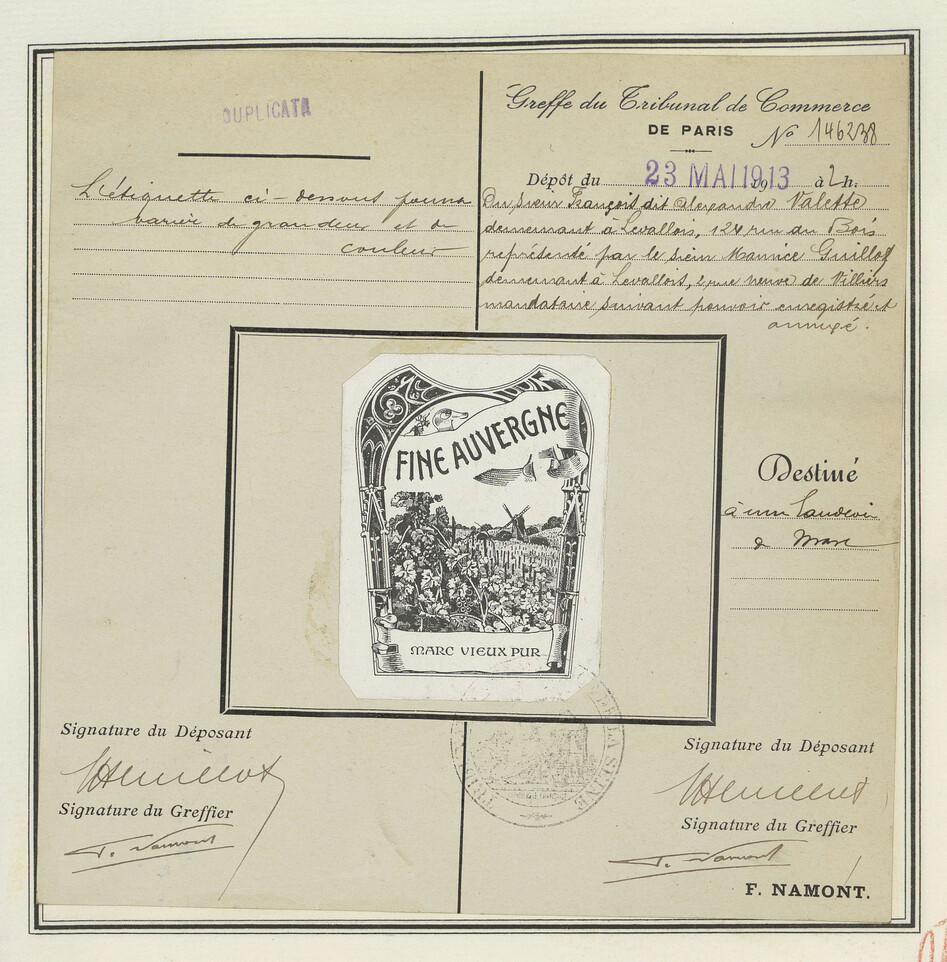 DUPLICATA
L'étiquette ci-dessous pourra
varier de grandeur et de
couleur
Greffe du Tribunal de Commerce
DE PARIS
No 146238
Dépôt du 23 MAI 1913 à 2 h.
Du sieur François dit Alexandre Valette
demeurant à Levallois, 124 rue du Bois
représenté par le sieur Maurice Guillot
demeurant à Levallois, 2 rue neuve de Villiers
mandataire suivant pouvoir enregistré et
annexé.
FINE AUVERGNE
MARC VIEUX PUR
Destiné
à une eau de vie
de Marc
DE LA SEINE
Signature du Déposant
Signature du Greffier
F. Namont
Signature du Déposant
Signature du Greffier
F. Namont
F. NAMONT.